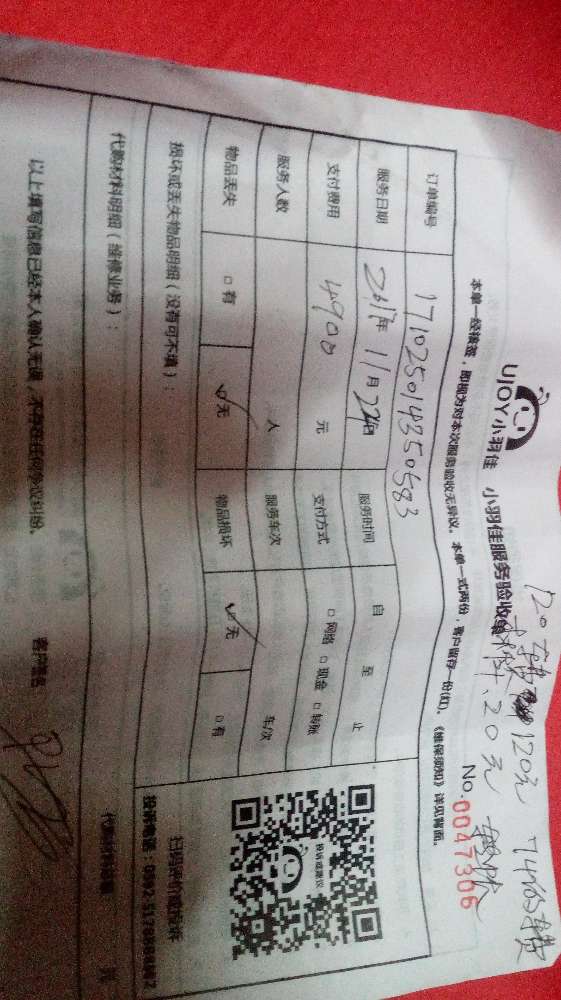 120
120元
20元
UJOY小羽佳 小羽佳服务验收单
No.0047306
本单一经接签，即视为对本次服务验收无异议。本单一式两份，客户留存一份(红)，《维保须知》详见背面。
订单编号 17102501435050583
服务日期 2017年11月22日 服务时间 自 至 止
支付费用 4900 元 支付方式 □网络 □现金 □转账
服务人数 人 服务车次 车次
物品丢失 □有 ☑无 物品损坏 ☑无 □有
损坏或丢失物品明细（没有可不填）：
代购材料明细（维修业务）：
以上填写信息已经本人确认无误，不存在任何争议纠纷。 客户签名
投诉或建议
扫码评价或投诉
投诉电话：